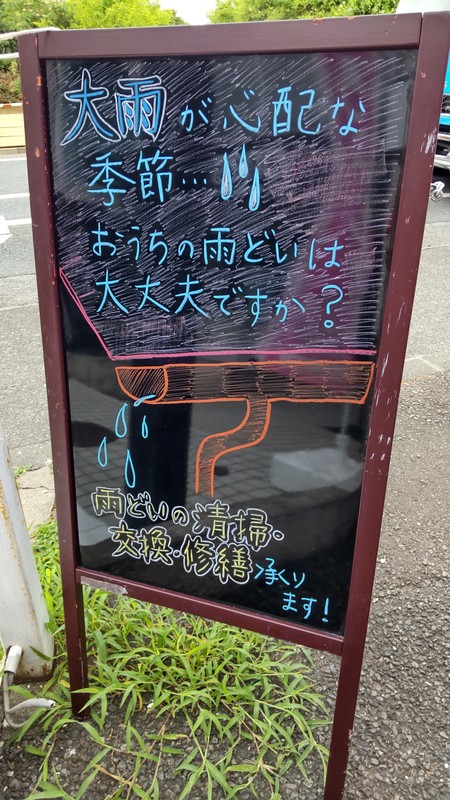 大雨が心配な
季節…
おうちの雨どいは
大丈夫ですか？
雨どいの清掃・
交換・修繕承り
ます！